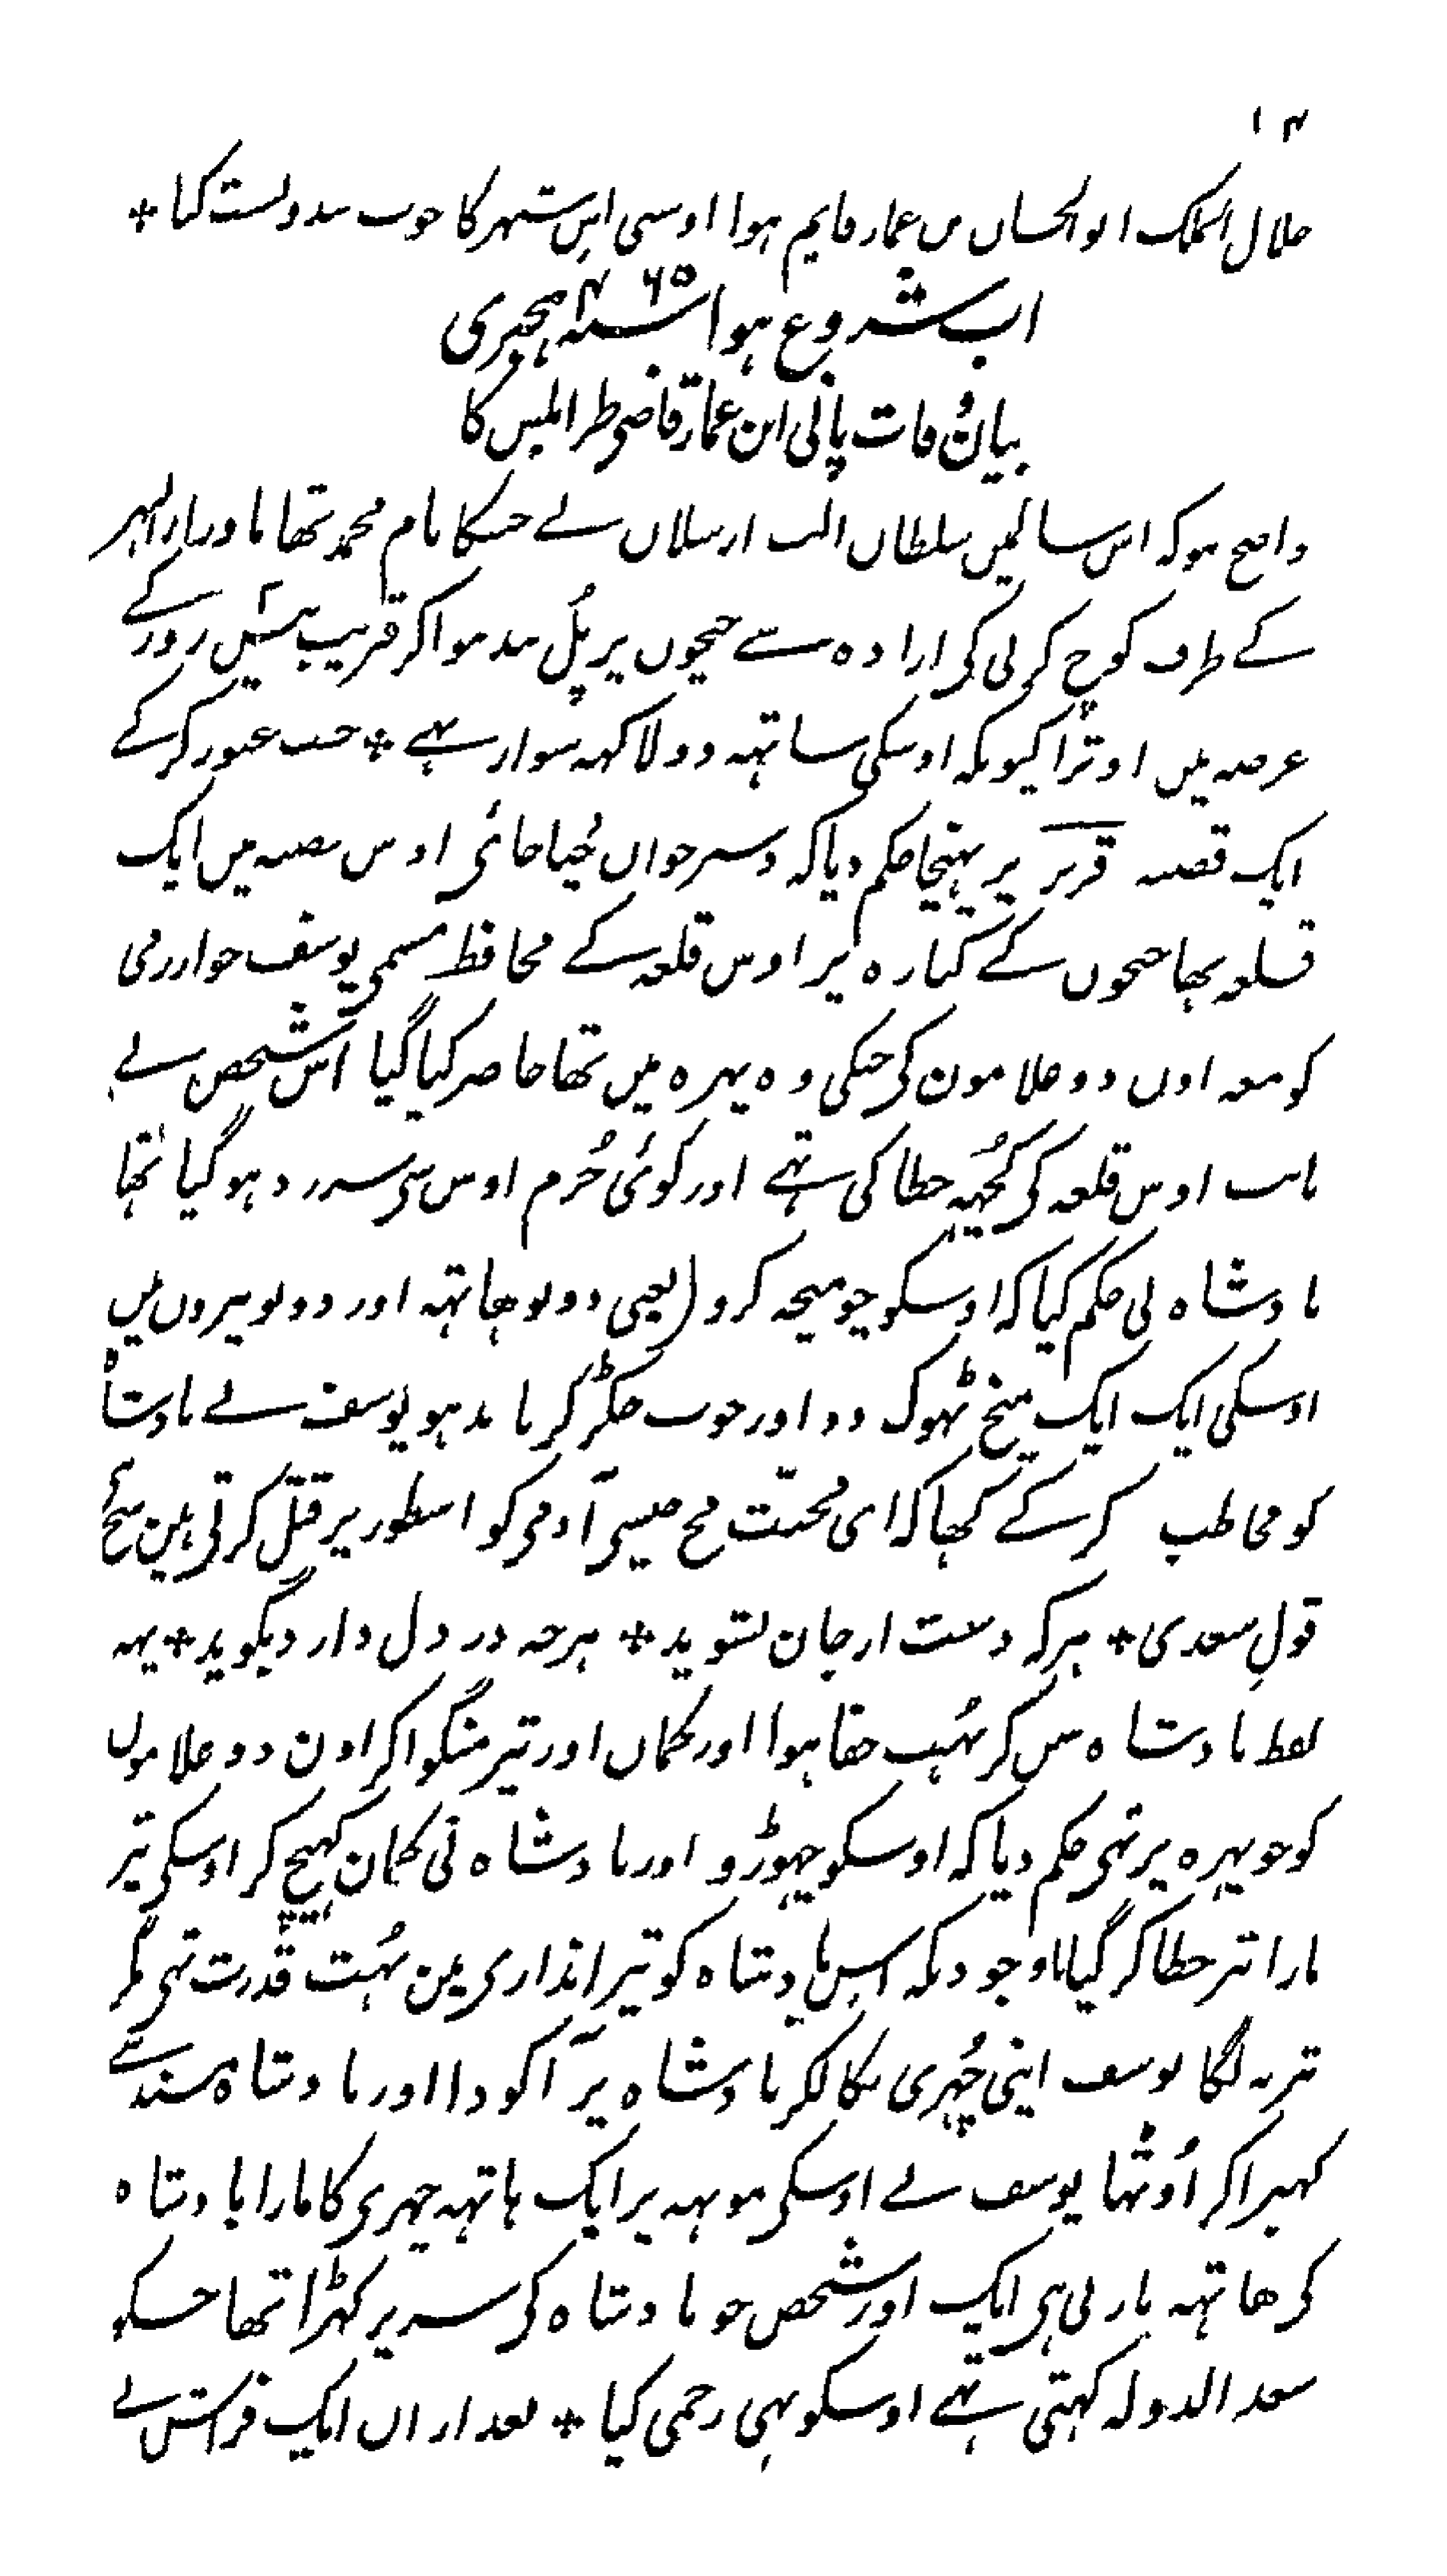 ۱۴
جلال الملک ابو الحسان بن عمار قایم ہوا اوسی اس شہر کا خوب بندوبست کیا *
اب شروع ہوا ۴۶۵ سنہ ہجری
بیان وفات پانی ابن عمار قاضی طرابلس کا
واضح ہو کہ اس سالمیں سلطان الب ارسلان نے جسکا نام محمد تھا ماوراء النہر
کے طرف کوچ کرنی کی ارادہ سے جیحون پر پُل بندہوا کر قریب بیس روز کے
عرصہ میں اوترا کیونکہ اوسکی ساتہہ دو لاکہہ سوار تہے * جب عبور کر کے
ایک قصبہ قریر پر پہنچا حکم دیا کہ دسترخوان بچہایا جائی اوس قصبہ میں ایک
قلعہ تھا جیحون کے کنارہ پر اوس قلعہ کے محافظ مسمی یوسف خوارزمی
کو معہ اون دو غلامون کی جنکی وہ پہرہ میں تھا حاضر کیا گیا اس شخص نے
بابت اوس قلعہ کی کچہہ خطا کی تہے اور کوئی جُرم اوس سی سرزد ہو گیا تھا
بادشاہ نی حکم کیا کہ اوسکو چومیخہ کرو (یعنی دونو ہاتہہ اور دونو پیروں میں
اوسکی ایک ایک میخ ٹہوک دو اور خوب جکڑ کر باندہو یوسف نے بادشاہ
کو مخاطب کر کے کہا کہ ای مخنّث مج جیسی آدمی کو اسطور پر قتل کرتی ہین سچ ہے
قولِ سعدی * ہر کہ دست از جان بشوید * ہرچہ در دل دارد بگوید * یہہ
لفظ بادشاہ سن کر بہُت خفا ہوا اور کمان اور تیر منگوا کر اون دو غلاموں
کو جو پہرہ پر تہی حکم دیا کہ اوسکو چہوڑو اور بادشاہ نی کمان کہینچ کر اوسکی تیر
مارا تیر خطا کر گیا باوجودیکہ اس بادشاہ کو تیر اندازی مین بہُت قدرت تہی مگر
تیر نہ لگا یوسف اپنی چُہری نکالکر بادشاہ پر آ کودا اور بادشاہ مسند سے
گہبرا کر اُوٹہا یوسف نے اوسکی مونہہ پر ایک ہاتہہ چہری کا مارا بادشاہ
کی ھاتہہ مارتی ہی ایک اور شخص جو بادشاہ کی سر پر کہڑا تھا جسکو
سعد الدولہ کہتی تہے اوسکو بہی زخمی کیا * بعد ازاں ایک فراش نے